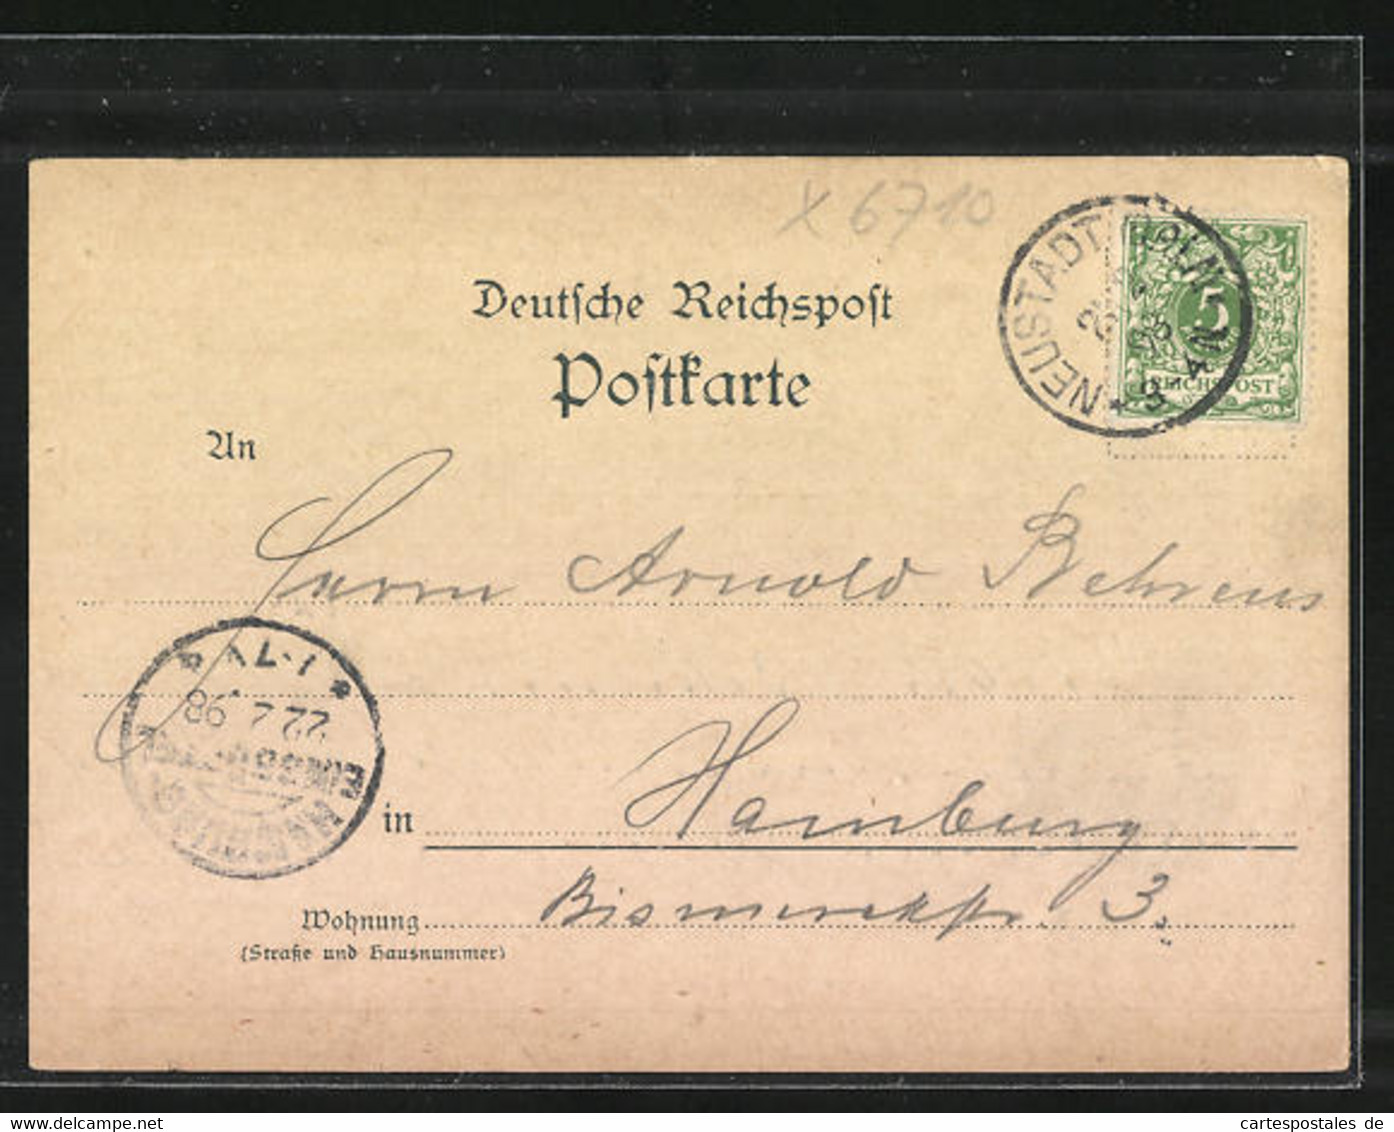 X 6710
Deutsche Reichspost
Postkarte
NEUSTADT
5
REICHSPOST
An
Herrn Arnold Behrens
22.2.98
in Hamburg
Wohnung 3.
(Straße und Hausnummer)
www.delcampe.net
cartespostales de